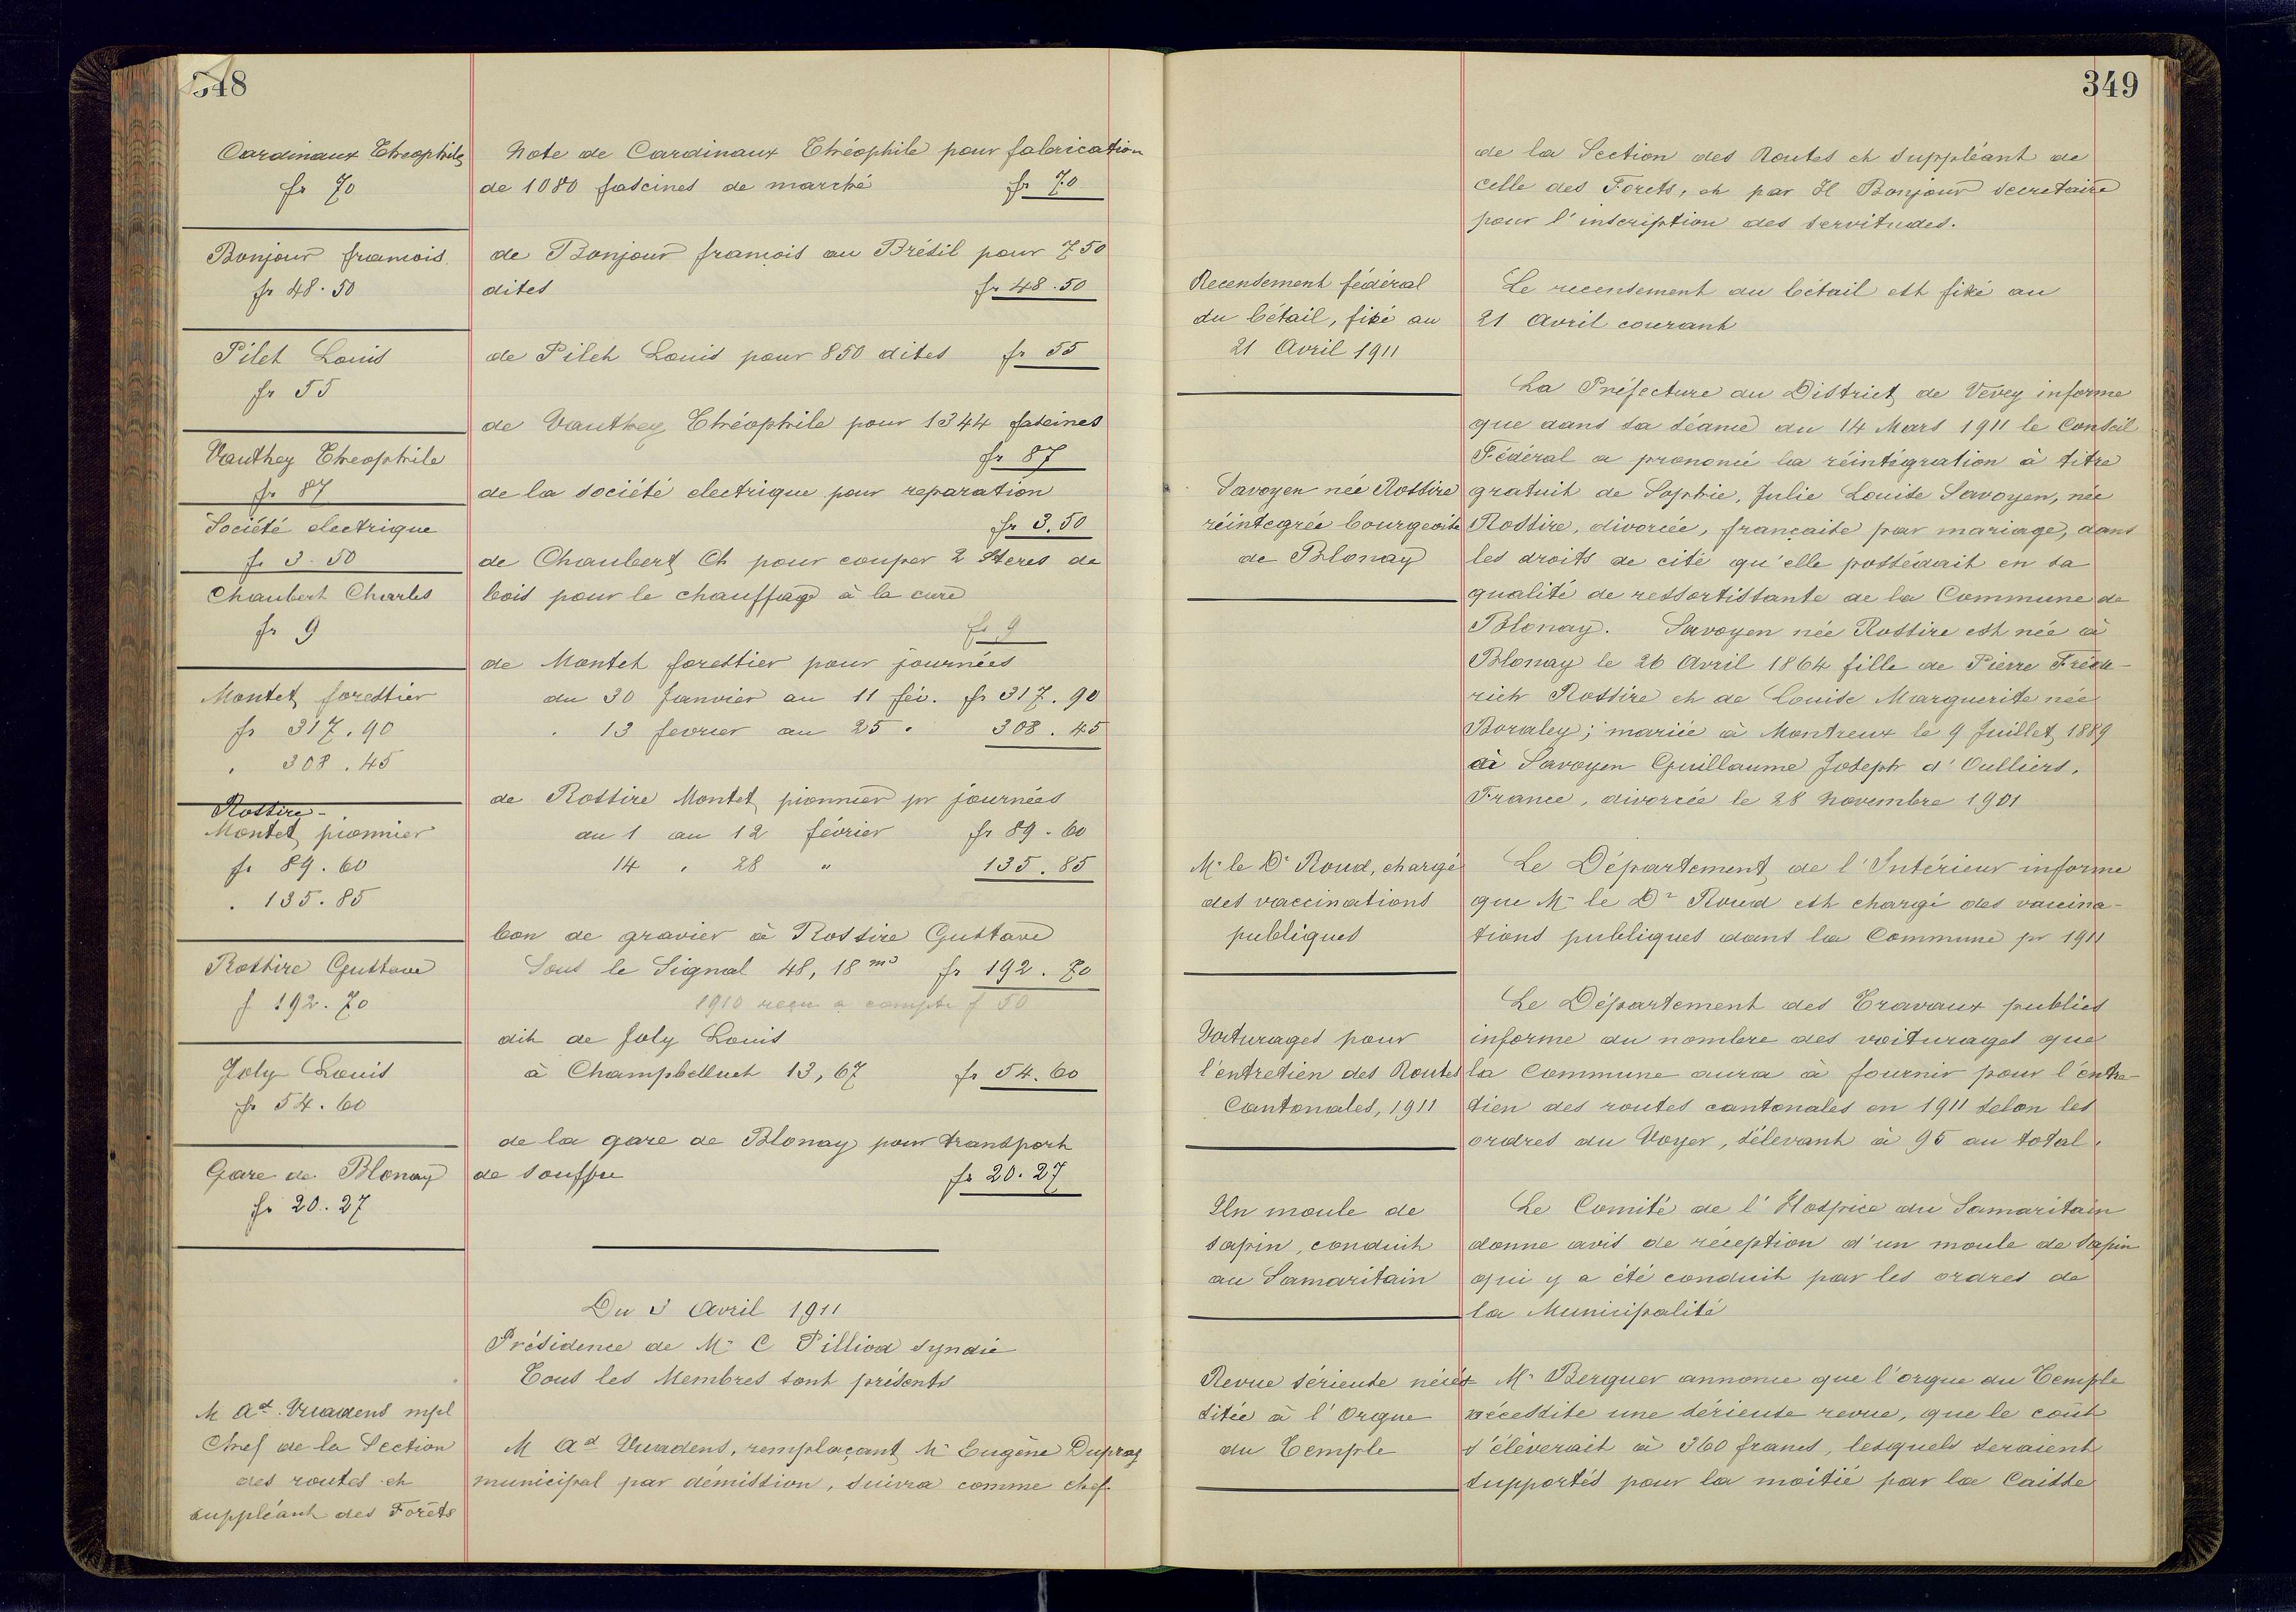 348
Cardinaux Théophile
fr 70
Note de Cardinaux Théophile pour fabrication
de 1080 fascines de marché fr 70
Bonjour françois
fr 48.50
de Bonjour françois au Brésil pour 750
dites fr 48.50
Pilet Louis
fr 55
de Pilet Louis pour 850 dites fr 55
Vauthey Théophile
fr 87
de Vauthey Théophile pour 1344 fascines
fr 87
Société electrique
fr 3.50
de la société electrique pour reparation
fr 3.50
Chaubert Charles
fr 9
de Chaubert Ch pour couper 2 Steres de
bois pour le chauffage à la cure
fr 9
Montet forestier
fr 317.90
" 308.45
de Montet forestier pour journées
du 30 Janvier au 11 fév. fr 317.90
" 13 fevrier au 25 " 308.45
Rossire-
Montet pionnier
fr 89.60
" 135.85
de Rossire Montet pionnier pr journées
du 1 au 12 février fr 89.60
14 " 28 " 135.85
Rossire Gustave
f 192.70
bon de gravier à Rossire Gustave
Sous le Signal 48,18 m3 fr 192.70
1910 reçu a compte f 50
Joly Louis
fr 54.60
dit de Joly Louis
à Champbelluet 13,67 fr 54.60
Gare de Blonay
fr 20.27
de la gare de Blonay pour transport
de souffre fr 20.27
Du 3 Avril 1911
Présidence de Mr C Pilliod Syndic
Tous les Membres sont présents
M Ad. Vuadens mpl
Chef de la Section
des routes et
suppléant des Forêts
M Ad Vuadens, remplaçant Mr Eugène Dupraz
municipal par démission, suivra comme chef
349
de la Section des Routes et suppléant de
celle des Forets, et par H Bonjour Secretaire
pour l'inscription des servitudes.
Recensement fédéral
du bétail, fixé au
21 Avril 1911
Le recensement du bétail est fixé au
21 Avril courant
Savoyen née Rossire
réintegrée bourgeoise
de Blonay
La Préfecture du District de Vevey informe
que dans sa séance du 14 Mars 1911 le Conseil
Fédéral a prononcé la réintégration à titre
gratuit de Sophie, Julie Louise Savoyen, née
Rossire, divorcée, française par mariage, dans
les droits de cité qu'elle possédait en sa
qualité de ressortissante de la Commune de
Blonay. Savoyen née Rossire est née à
Blonay le 26 Avril 1864 fille de Pierre Fréde-
rich Rossire et de Louise Marguerite née
Boraley; mariée à Montreux le 9 Juillet 1889
à Savoyen Guillaume Joseph d'Oulliers,
France, divorcée le 28 Novembre 1901
Mr le Dr Roud, chargé
des vaccinations
publiques
Le Département de l'Intérieur informe
que Mr le Dr Roud est chargé des vaccina-
tions publiques dans la Commune pr 1911
Voiturages pour
l'entretien des Routes
Cantonales, 1911
Le Département des Travaux publics
informe du nombre des voiturages que
la Commune aura à fournir pour l'entre-
tien des routes cantonales en 1911 selon les
ordres du Voyer, s'élevant à 95 au total.
Un moule de
sapin, conduit
au Samaritain
Le Comité de l'Hospice du Samaritain
donne avis de réception d'un moule de Sapin
qui y a été conduit par les ordres de
la Municipalité
Revue sérieuse néces
sitée à l'Orgue
du Temple
Mr Berguer annonce que l'orgue du Temple
nécessite une sérieuse revue, que le coût
s'élèverait à 360 francs, lesquels seraient
supportés pour la moitié par la Caisse